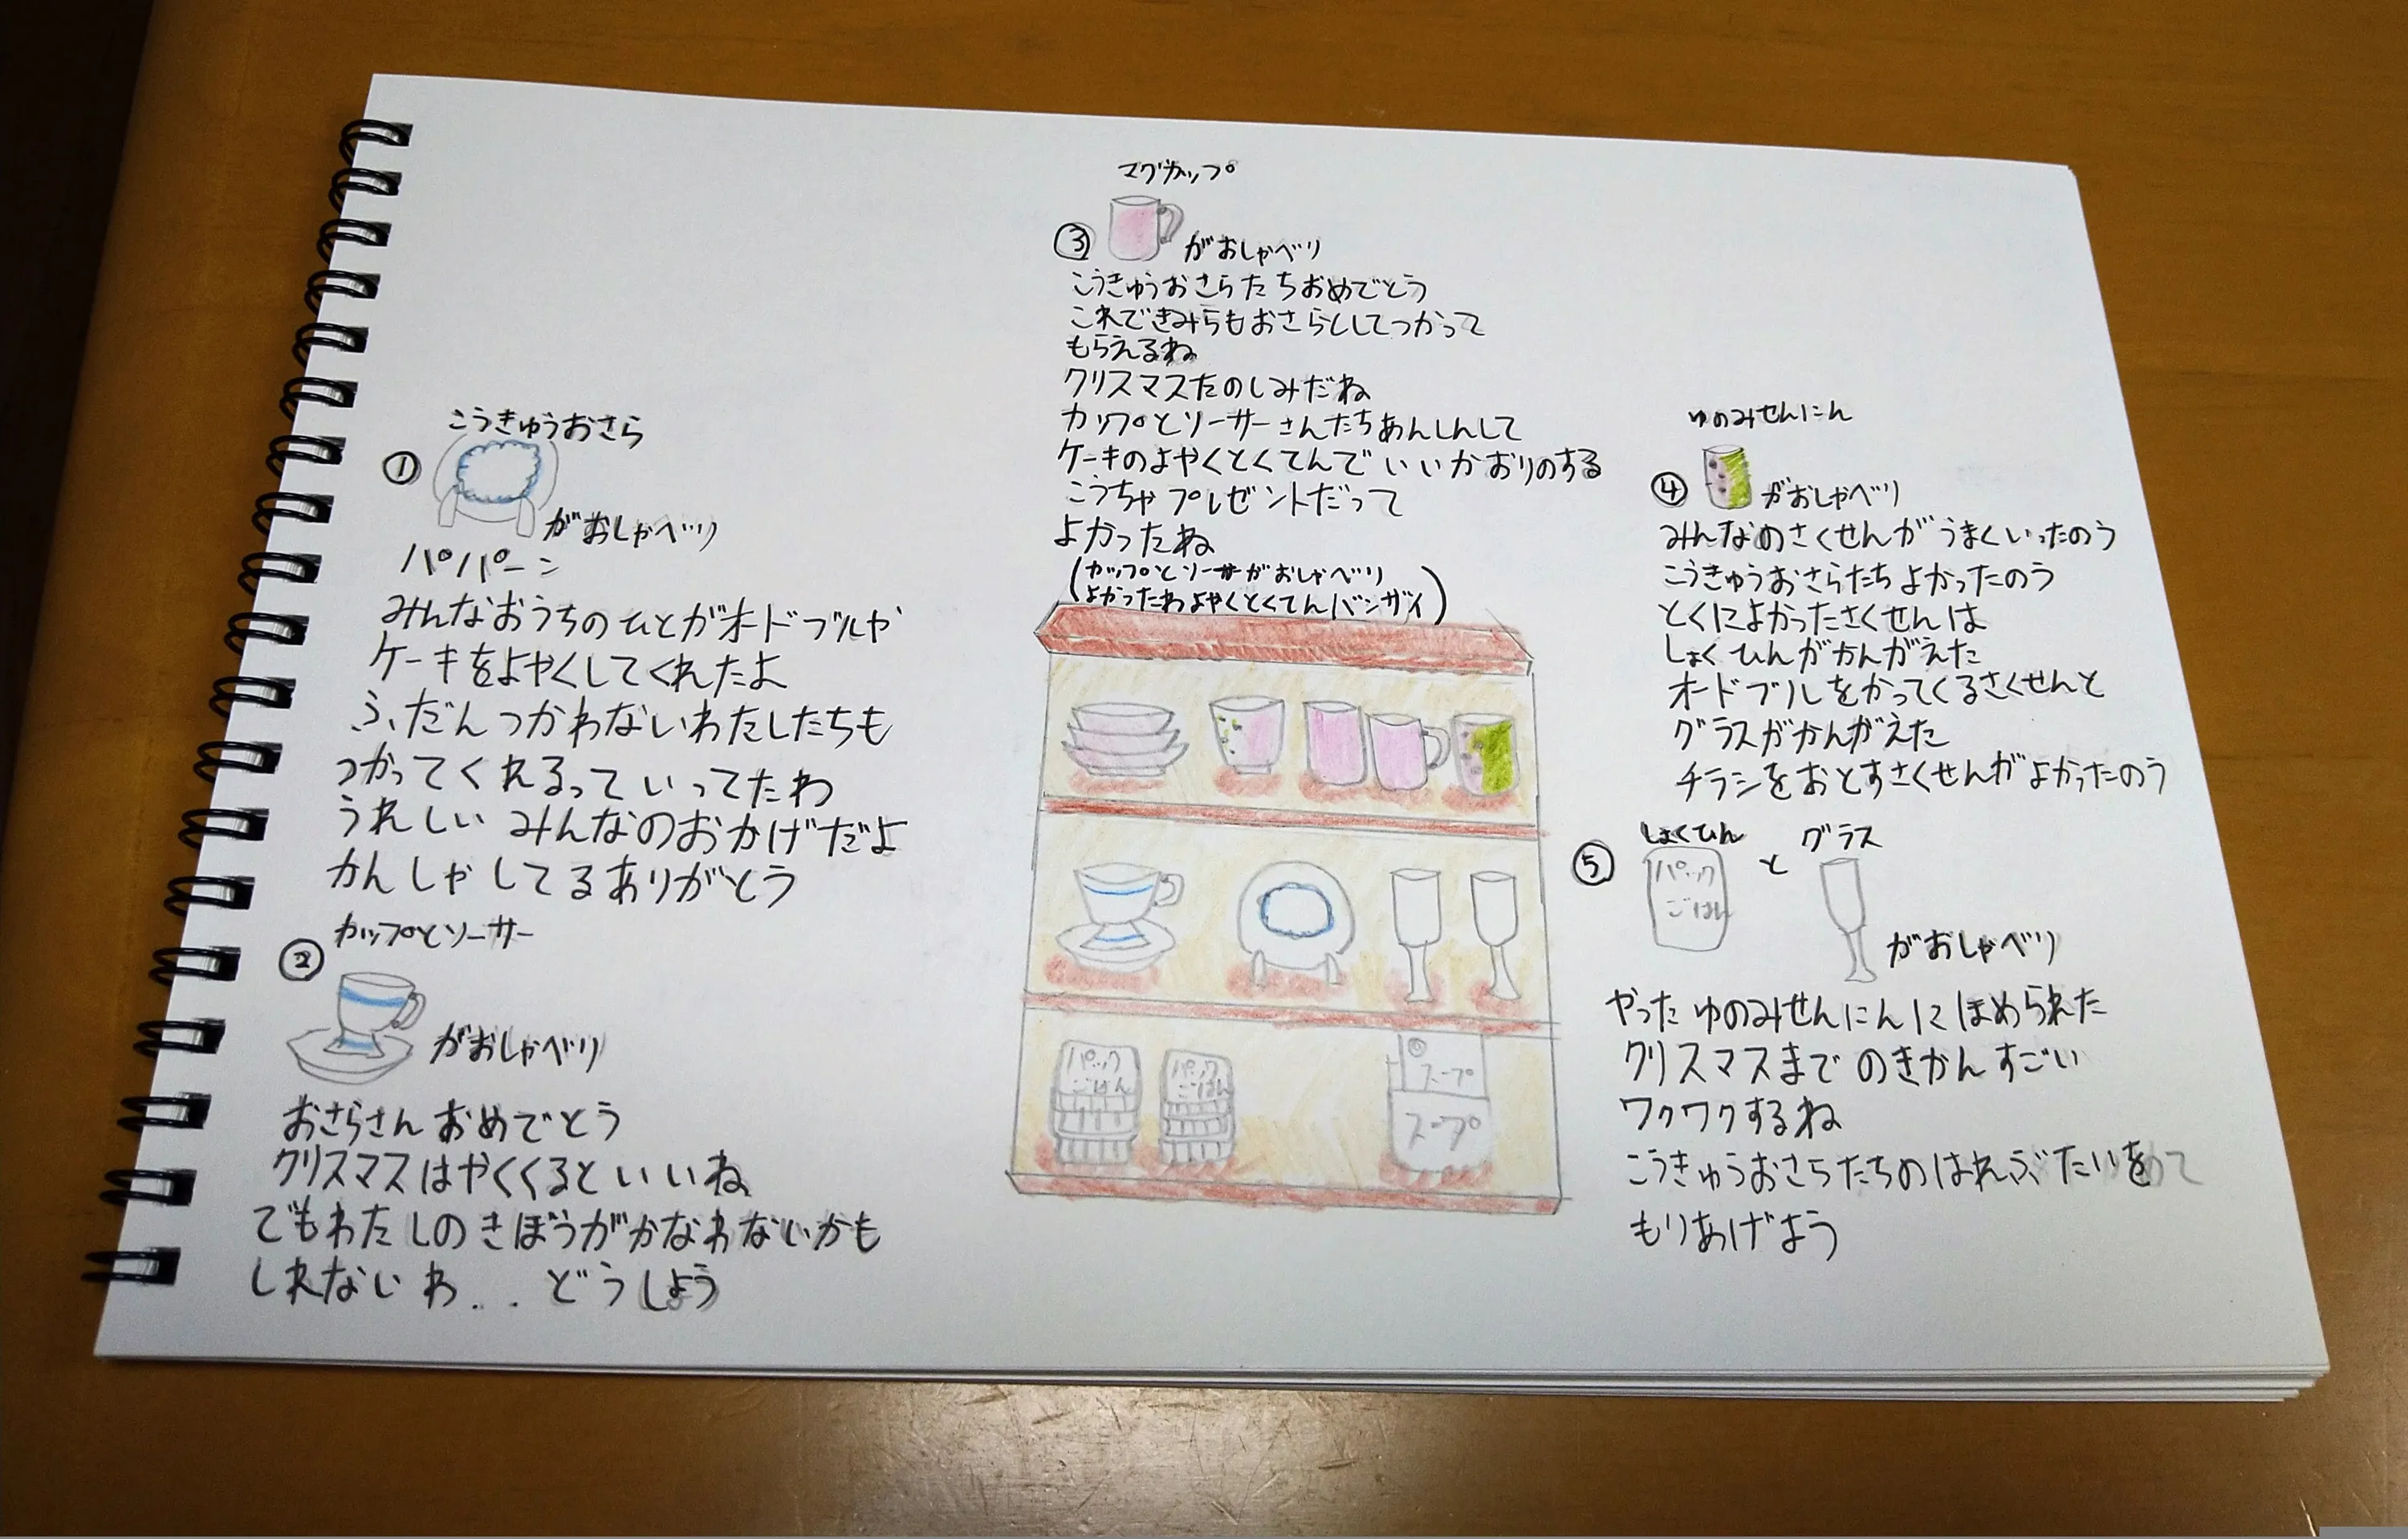 こうきゅうおさら
①
がおしゃべり
パパパーン
みんなおうちのひとがオードブルや
ケーキをよやくしてくれたよ
ふだんつかわないわたしたちも
つかってくれるっていってたわ
うれしいみんなのおかげだよ
かんしゃしてるありがとう
カップとソーサー
②
がおしゃべり
おさらさんおめでとう
クリスマスはやくくるといいね
でもわたしのきぼうがかなわないかも
しれないわ.. どうしよう
マグカップ
③
がおしゃべり
こうきゅうおさらたちおめでとう
これできみらもおさらとしてつかって
もらえるね
クリスマスたのしみだね
カップとソーサーさんたちあんしんして
ケーキのよやくとくてんでいいかおりのする
こうちゃプレゼントだって
よかったね
(カップとソーサーがおしゃべり
よかったわよやくとくてんバンザイ)
パック
ごはん
パック
ごはん
スープ
スープ
ゆのみせんにん
④
がおしゃべり
みんなのさくせんがうまくいったのう
こうきゅうおさらたちよかったのう
とくによかったさくせんは
しょくひんがかんがえた
オードブルをかってくるさくせんと
グラスがかんがえた
チラシをおとすさくせんがよかったのう
⑤
しょくひん と グラス
パック
ごはん
がおしゃべり
やったゆのみせんにんにほめられた
クリスマスまでのきかんすごい
ワクワクするね
こうきゅうおさらたちのはれぶたいを
もりあげよう